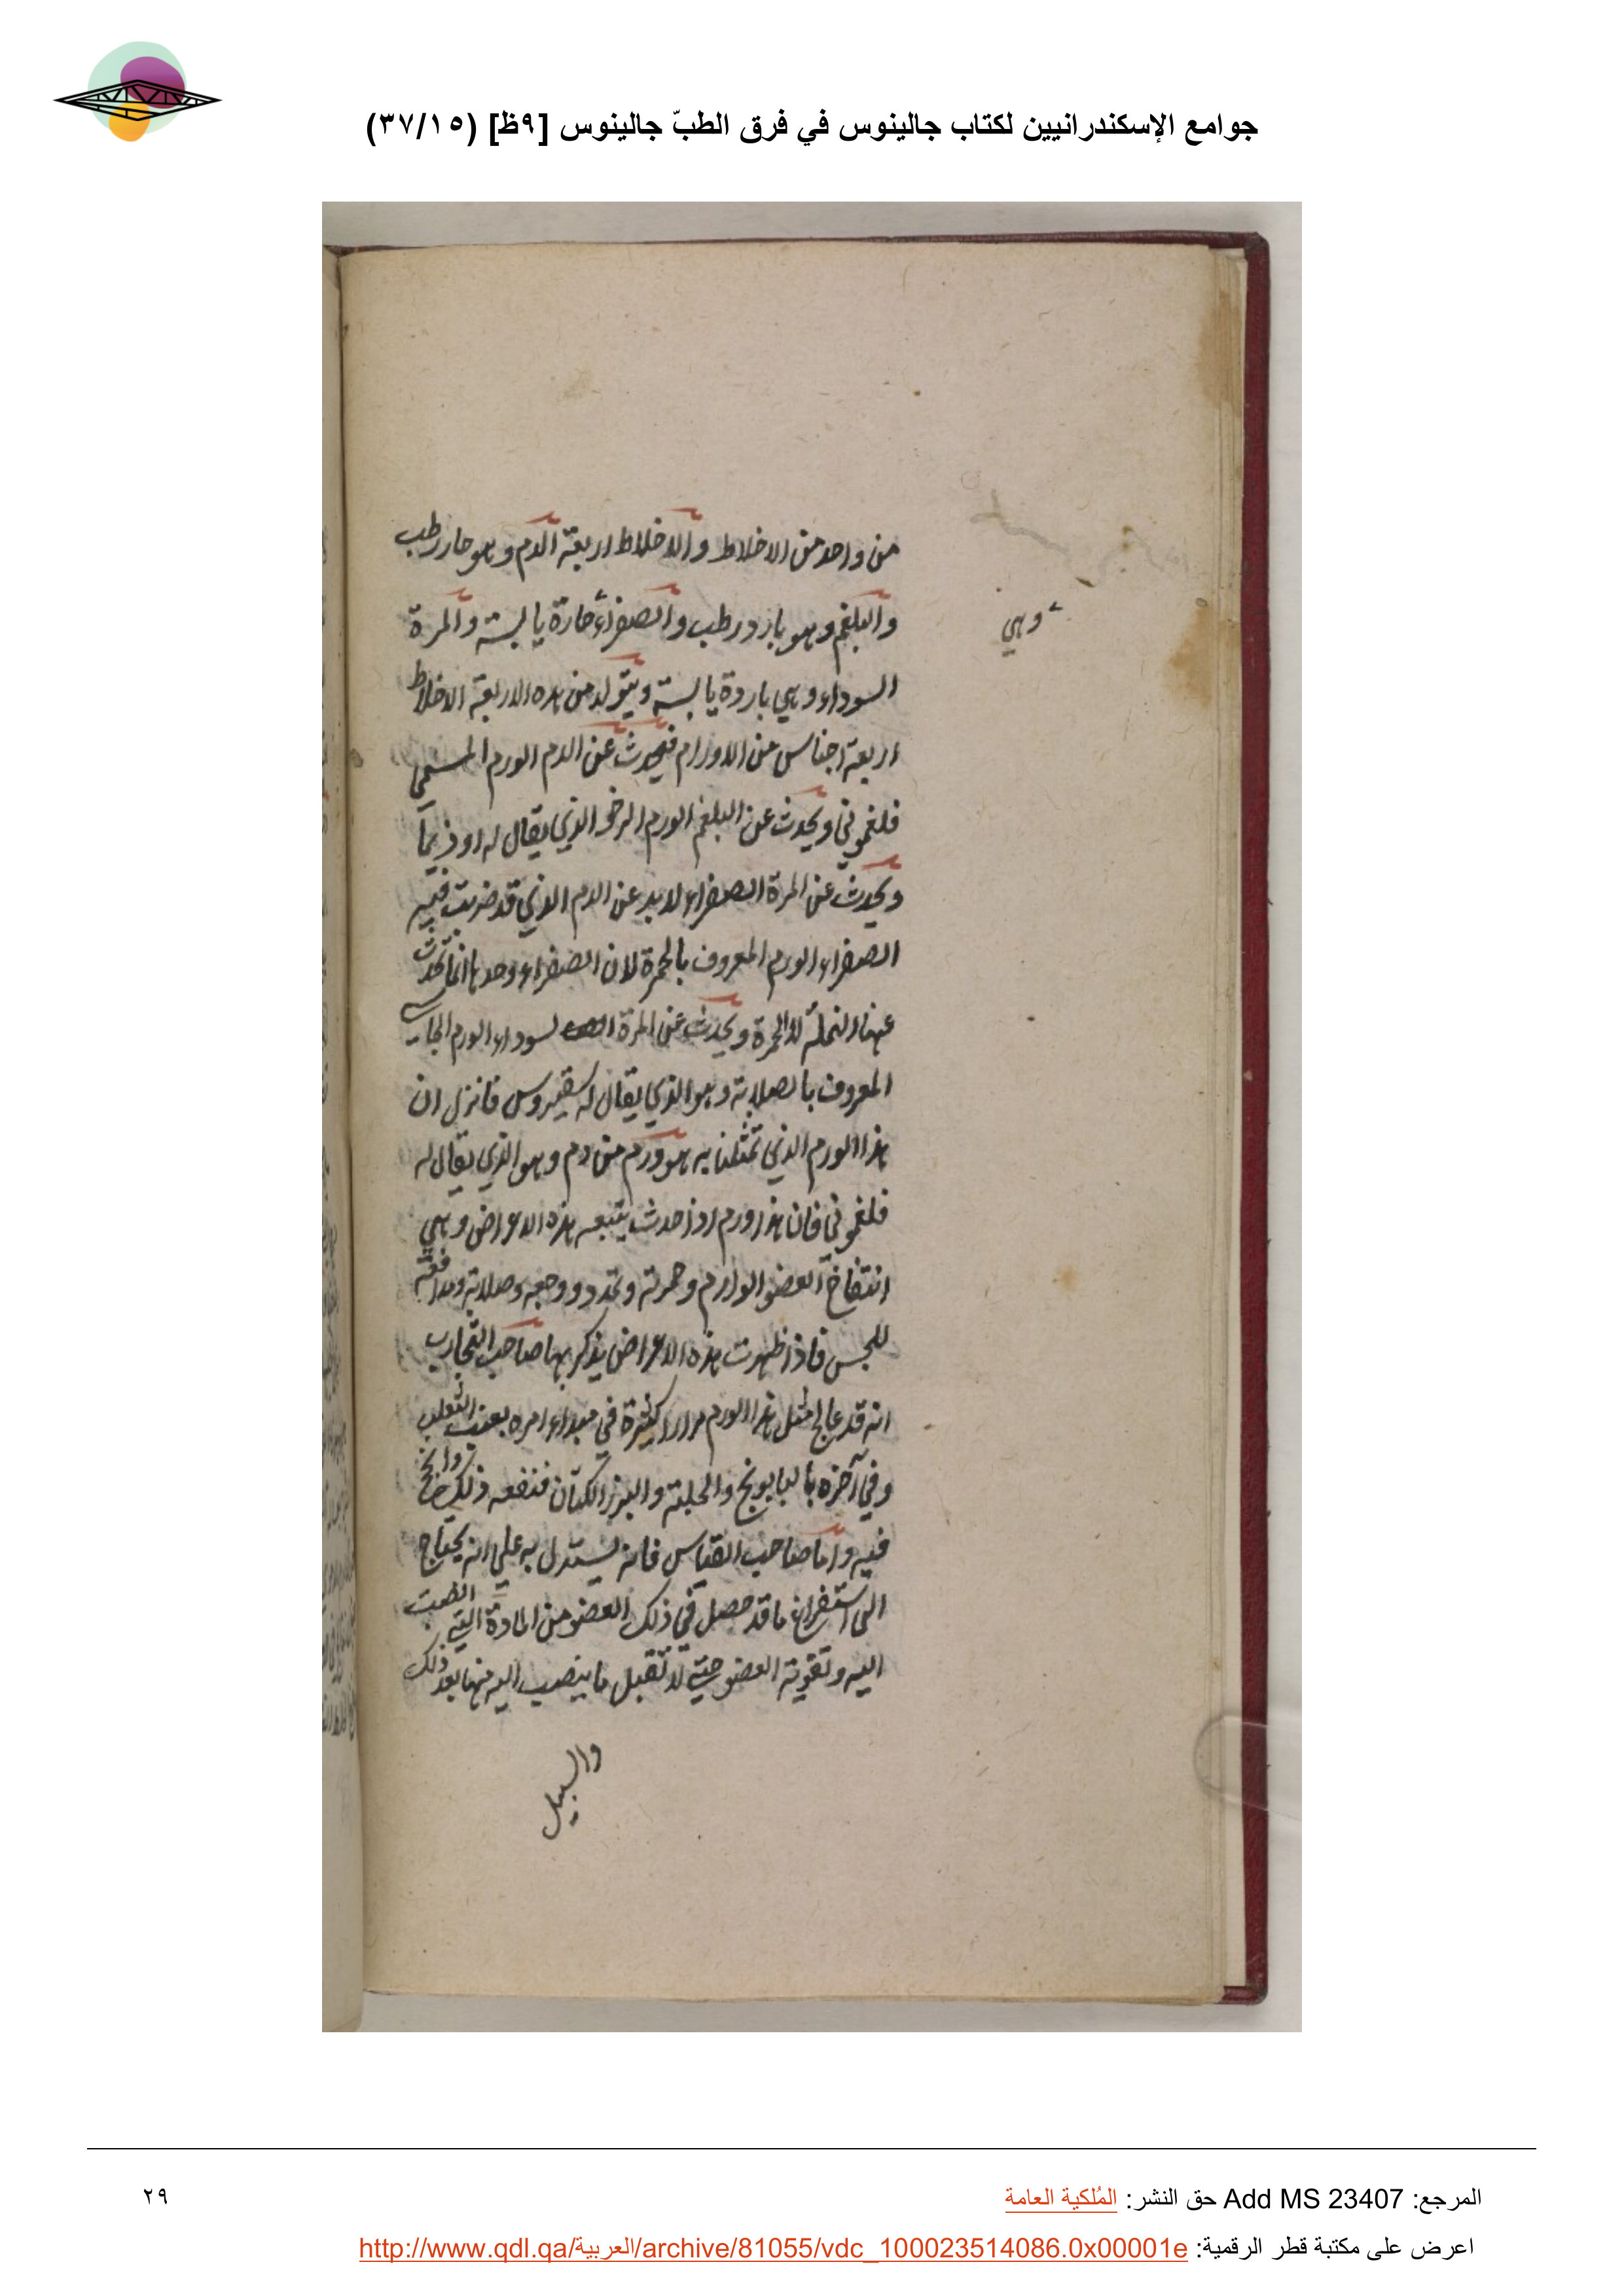 جوامع الإسكندرانيين لكتاب جالينوس في فرق الطبّ جالينوس [٩ظ] (٣٧/١٥)
من واحد من الاخلاط والاخلاط اربعة الدم وهو حار رطب
والبلغم وهو بارد رطب والصفراء حارة يابسة والمرة
وهي
السوداء وهي باردة يابسة ويتولد من هذه الاربعة الاخلاط
اربعة اجناس من الاورام فيحدث عن الدم الورم المسمي
فلغموني ويحدث عن البلغم الورم الرخو الذي يقال له اوذيما
ويحدث عن المرة الصفراء لا بد عن الدم الذي قد ضربت فيه
الصفراء الورم المعروف بالحمرة لان الصفراء وحدها انما تحدث
عنها النملة لا الحمرة ويحدث عن المرة السوداء الورم الجاسي
المعروف بالصلابة وهو الذي يقال له سقيروس فانزل ان
هذا الورم الذي تمثلنا به هو ورم من دم وهو الذي يقال له
فلغموني فان هذا ورم اذا حدث يتبعه هذه الاعراض وهي
انتفاخ العضو الوارم وحمرته وتمدد ووجعه وصلابته ومدافعته
للجس فاذا ظهرت هذه الاعراض يذكر بها صاحب التجارب
انه قد عالج مثل هذا الورم مرارا كثيرة في مبداء امره بعنب الثعلب
وفي آخره بالبابونج والحلبة والبزر الكتان فنفعه ذلك وانجح
فيه واما صاحب القياس فانه يستدل به علي انه يحتاج
الى استفراغ ما قد حصل في ذلك العضو من المادة التي انصبت
اليه وتقوية العضو حتي لا تقبل ما ينصب اليه منها بعد ذلك
والسبيل
المرجع: Add MS 23407 حق النشر: المُلكية العامة
٢٩
اعرض على مكتبة قطر الرقمية: http://www.qdl.qa/العربية/archive/81055/vdc_100023514086.0x00001e